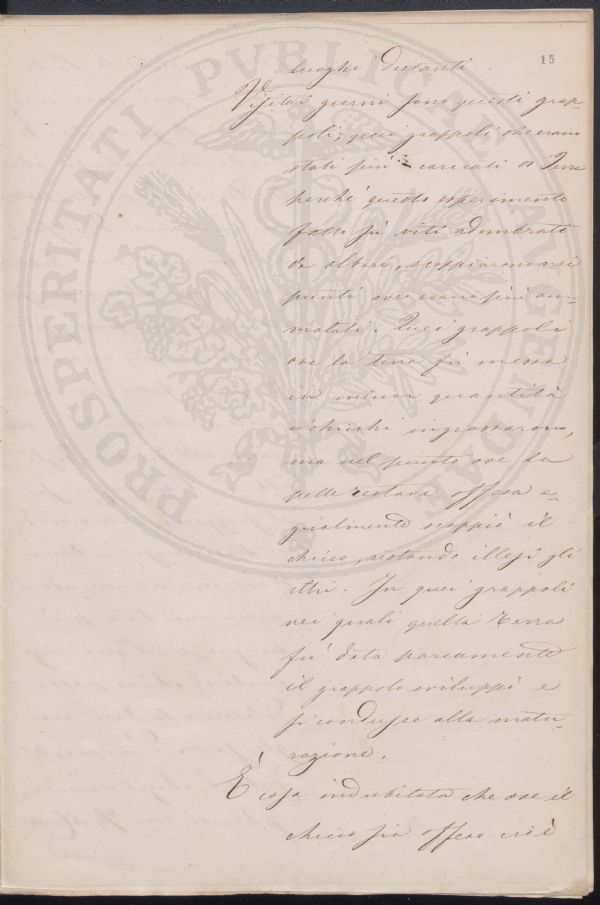 15
luoghi distanti.
Visitai giorni sono questi grap-
poli; quei grappoli che erano
stati più caricati di Terra
perché questo esperimento
fatto fù viti adombrate
da alberi, scoppiarono nei
punti ove erano più am-
malati. Quei grappoli
ove la terra fù messa
in minor quantità
i chicchi ingrossarono,
ma nel punto ove la
pelle restava offesa e-
gualmente scoppiò il
chicco, restando illesi gli
altri. In quei grappoli
nei quali quella Terra
fù data parcamente
il grappolo sviluppò e
si condusse alla matu-
razione.
È cosa indubitata che ove il
chicco sia offeso ciò è
PROSPERITATI PUBLICAE AUGENDAE